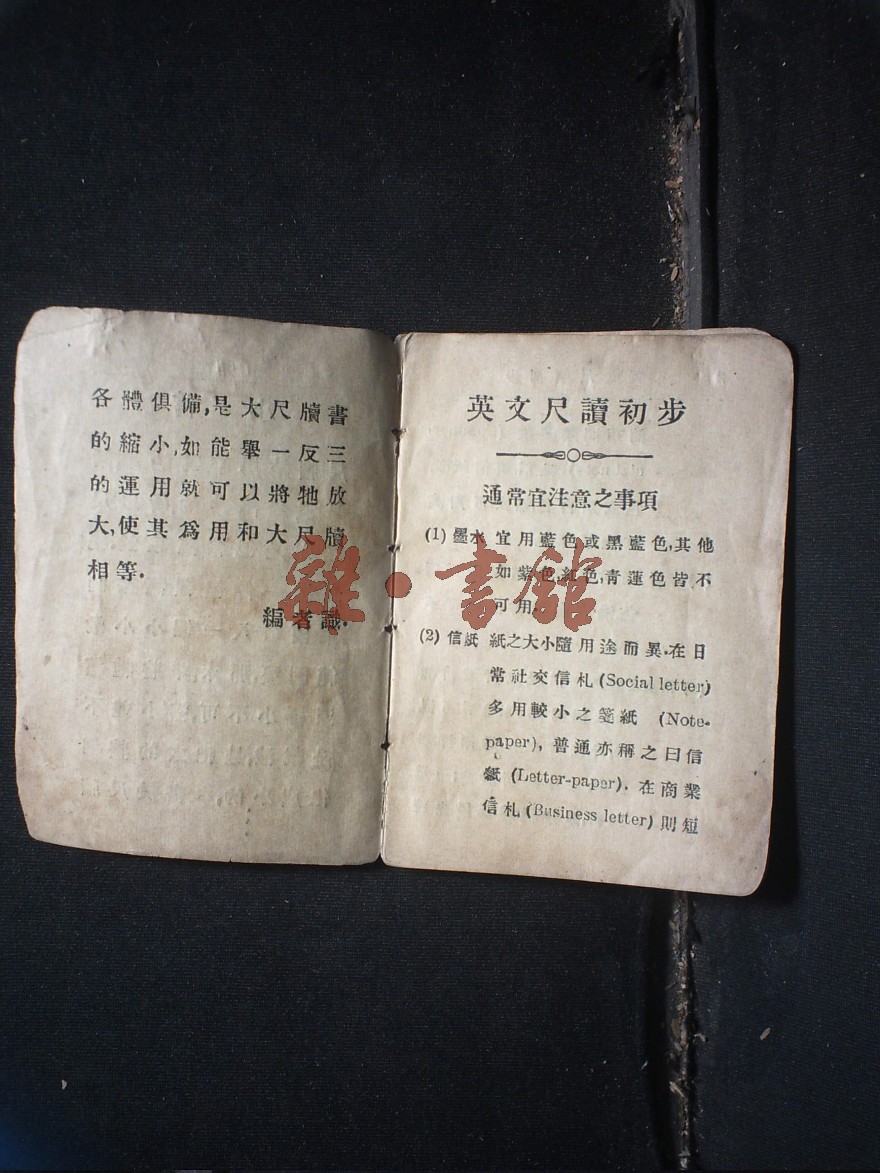 各體俱備,是大尺牘書
的縮小,如能舉一反三
的運用就可以將牠放
大,使其爲用和大尺牘
相等.
編者識.
英文尺讀初步
通常宜注意之事項
(1) 墨水 宜用藍色或黑藍色,其他
如紫色,紅色,青蓮色皆不
可用.
(2) 信紙 紙之大小隨用途而異.在日
常社交信札(Social letter)
多用較小之箋紙 (Note-
paper), 普通亦稱之曰信
紙 (Letter-paper). 在商業
信札(Business letter)則短
雜·書館